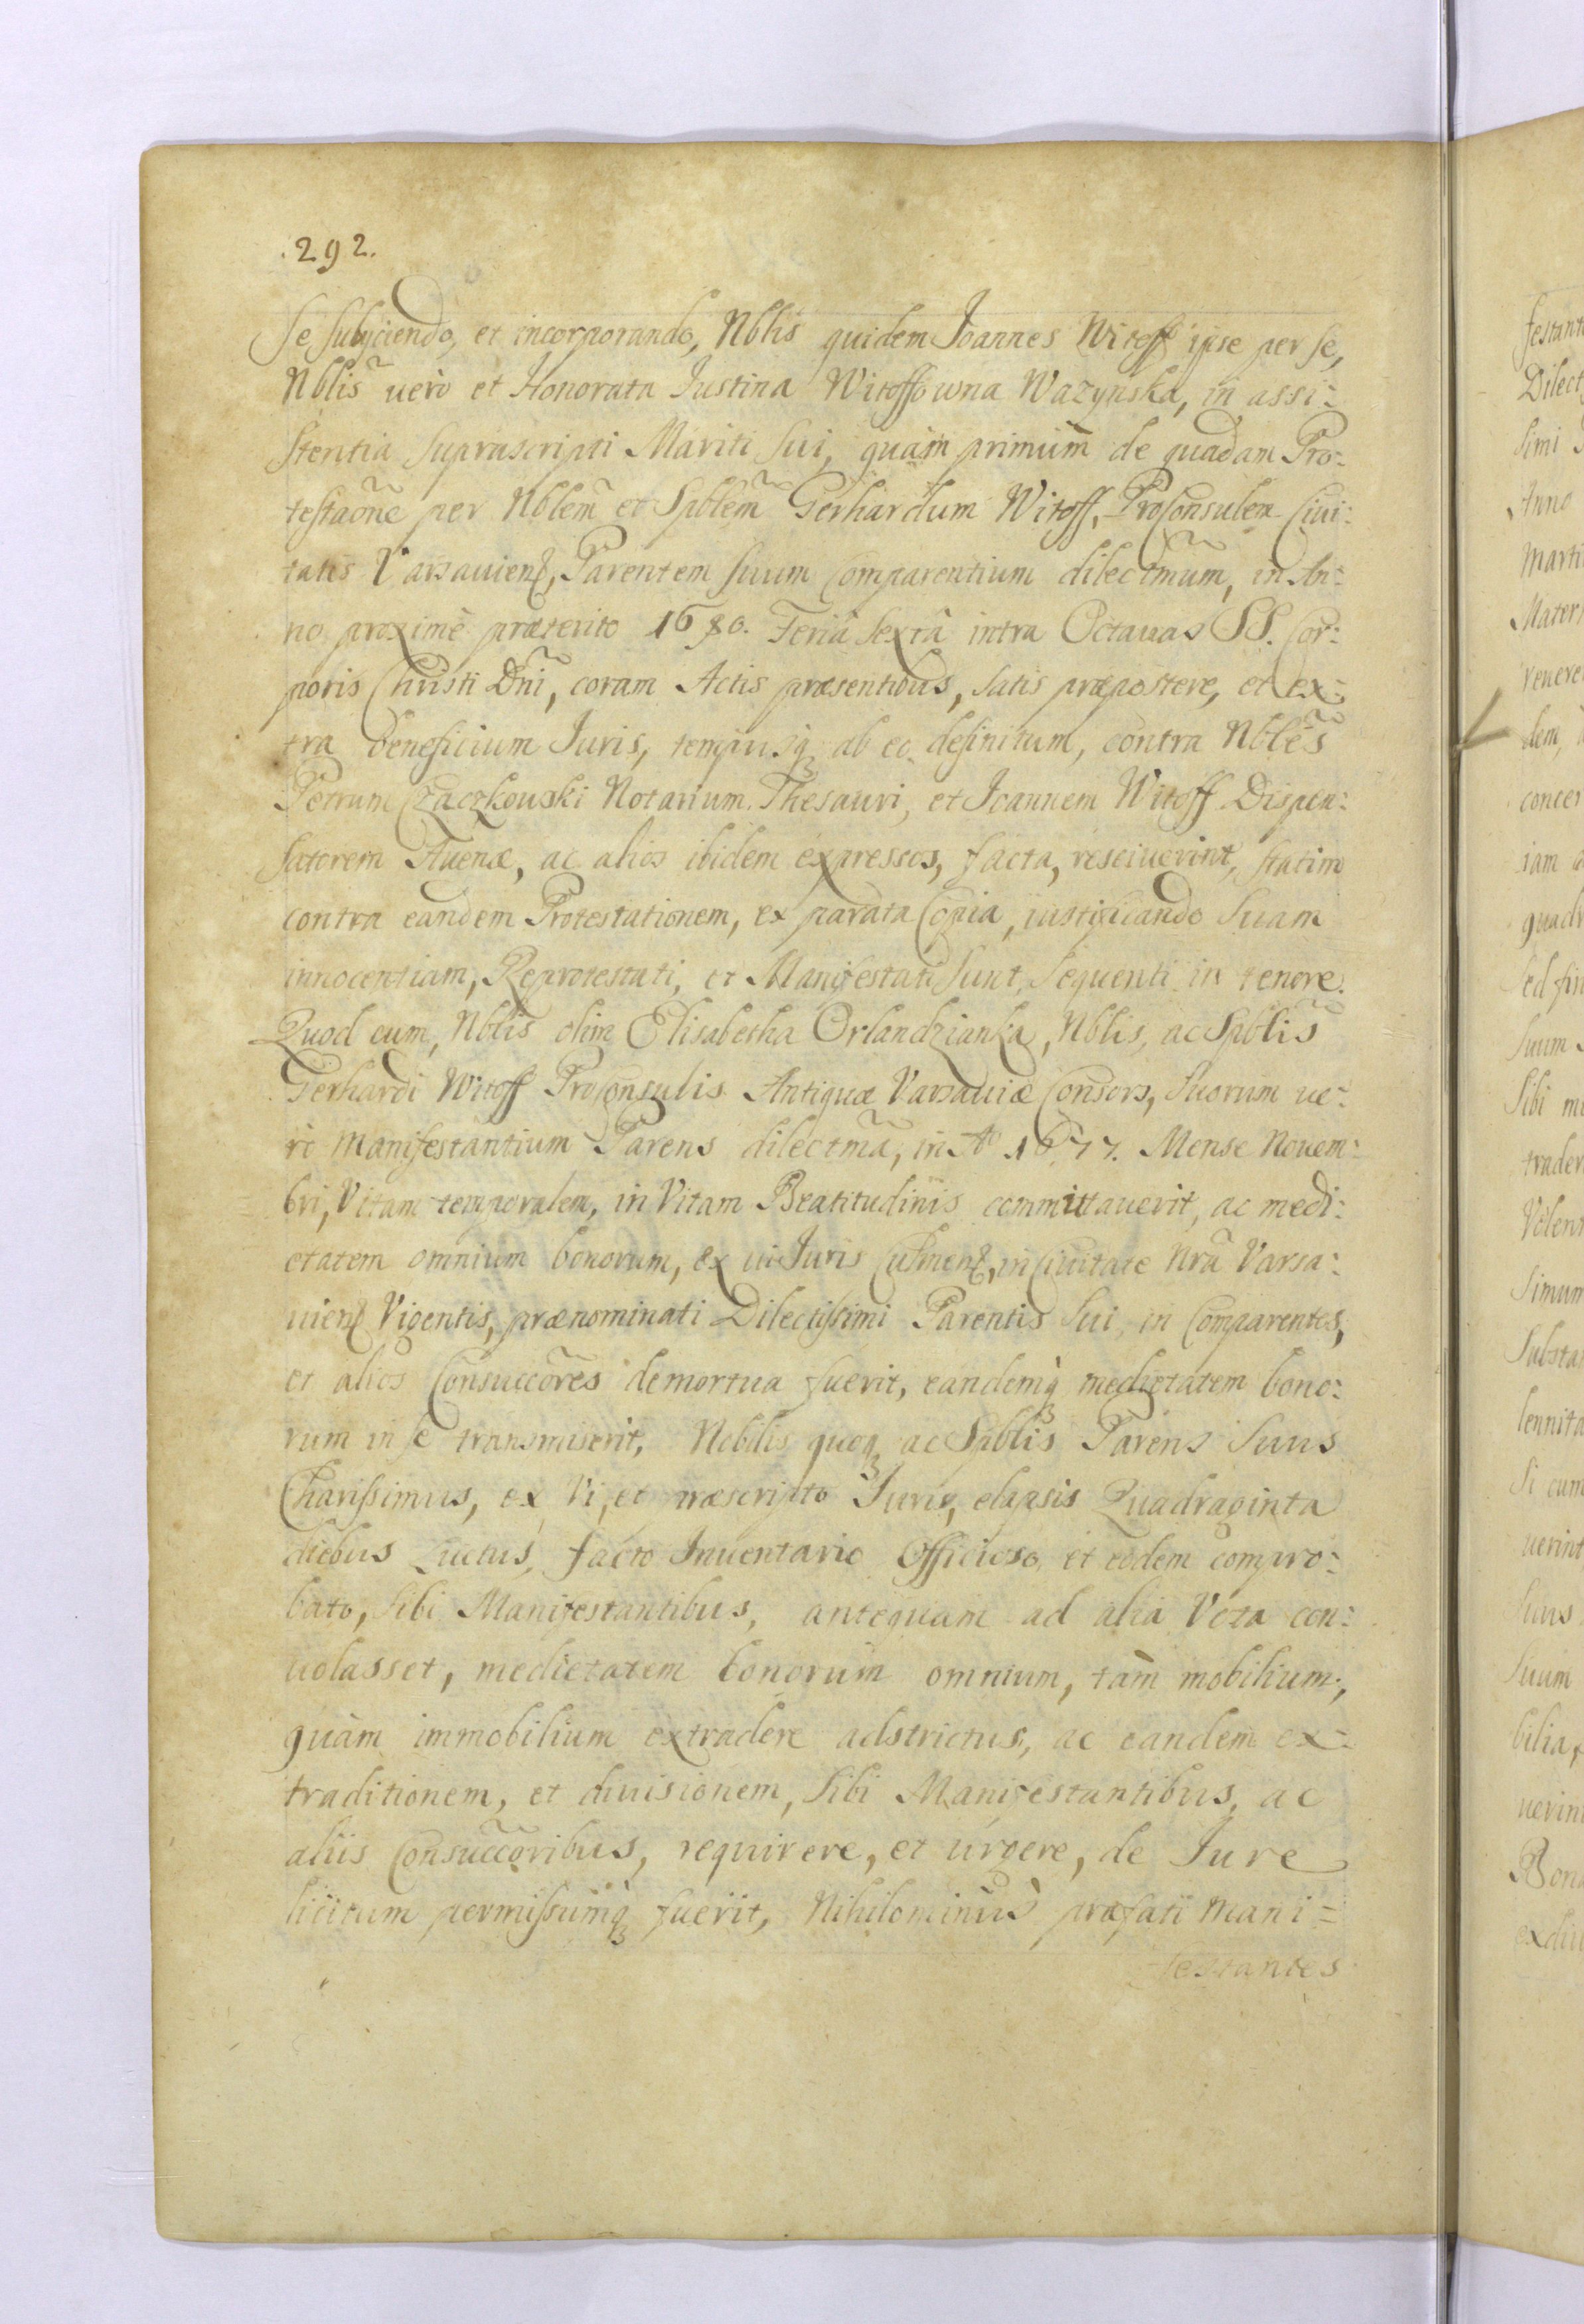 .292.
se subijciendo, et incorporando, Nblis quidem Joannes Witoff ipse per se,
Nblis uerò et Honorata Iustina Witoffowna Wazynska, in assi:
stentia suprascripti Mariti sui, quàm primùm de quadam Pro:
testaone per Nblem et Spblem Gerhardum Witoff, Proconsulem Ciui:
tatis Varsauien, Parentem suum Comparentium dilectmum, in An:
no proximè præterito 1680. Feriâ sextâ intra Octauas SS. Cor:
poris Christi Dni, coram Actis præsentibus, satis præpostere, et ex:
tra beneficium Iuris, tempusq; ab eo definitum, contra Nbles
Petrum Czaczkowski Notarium Thesauri, et Joannem Witoff Dispen:
satorem Auenæ, ac alios ibidem expressos, facta, resciuerint, statim
contra eandem Protestationem, ex parata Copia, iustificando suam
innocentiam, Reprotestati, et Manifestati sunt, sequenti in tenore.
Quod cum, Nblis olim Elisabetha Orlandzianka, Nblis, ac Spblis
Gerhardi Witoff Proconsulis Antiquæ Varsauiæ Consors, suorum ue:
rò Manifestantium Parens dilectma, in Ao 1677. Mense Nouem:
bri, Vitam temporalem, in Vitam Beatitudinis committauerit, ac medi:
etatem omnium bonorum, ex ui Iuris Culmen, in Ciuitate Nra Varsa:
uien Vigentis, prænominati Dilectissimi Parentis sui, in Comparentes,
et alios Consuccores demortua fuerit, eandemq; medietatem bono:
rum in se transmiserit, Nobilis quoq; ac Spblis Parens suus
Charissimus, ex Vi, et præscripto Iuris, elapsis Quadraginta
diebus Luctus, facto Inuentario Officioso, et eodem compro:
bato, sibi Manifestantibus, antequam ad alia Vota con:
uolasset, medietatem bonorum omnium, tàm mobilium,
quàm immobilium extradere adstrictus, ac eandem ex:
traditionem, et diuisionem, sibi Manifestantibus, ac
aliis Consuccoribus, requirere, et urgere, de Iure
licitum permissumq; fuerit, Nihilominus præfati Mani:
festantes